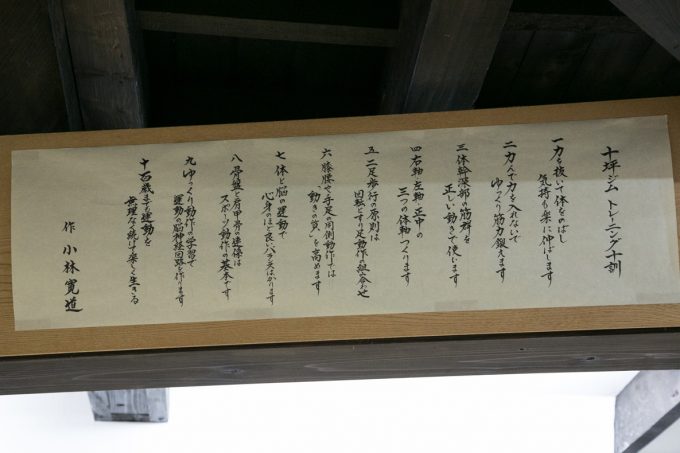 十坪ジム トレーニング十訓
一 力を抜いて体をのばし
気持も楽に伸ばします
二 力んで力を入れないで
ゆっくり筋力鍛えます
三 体幹深部の筋群を
正しい動きで使います
四 右軸 左軸 正中の
三つの体軸つくります
五 二足歩行の原則は
回転とすり足動作の組合わせ
六 膝腰や手足の同側動作では
"動きの質"を高めます
七 体と脳の運動で
心身のほど良いバランスはかります
八 骨盤と肩甲骨の連係は
スポーツ動作の基本です
九 ゆっくり動作の学習で
運動の脳神経回路を作ります
十 百歳まで運動を
無理なく続けて楽しく生きる
作 小林寛道